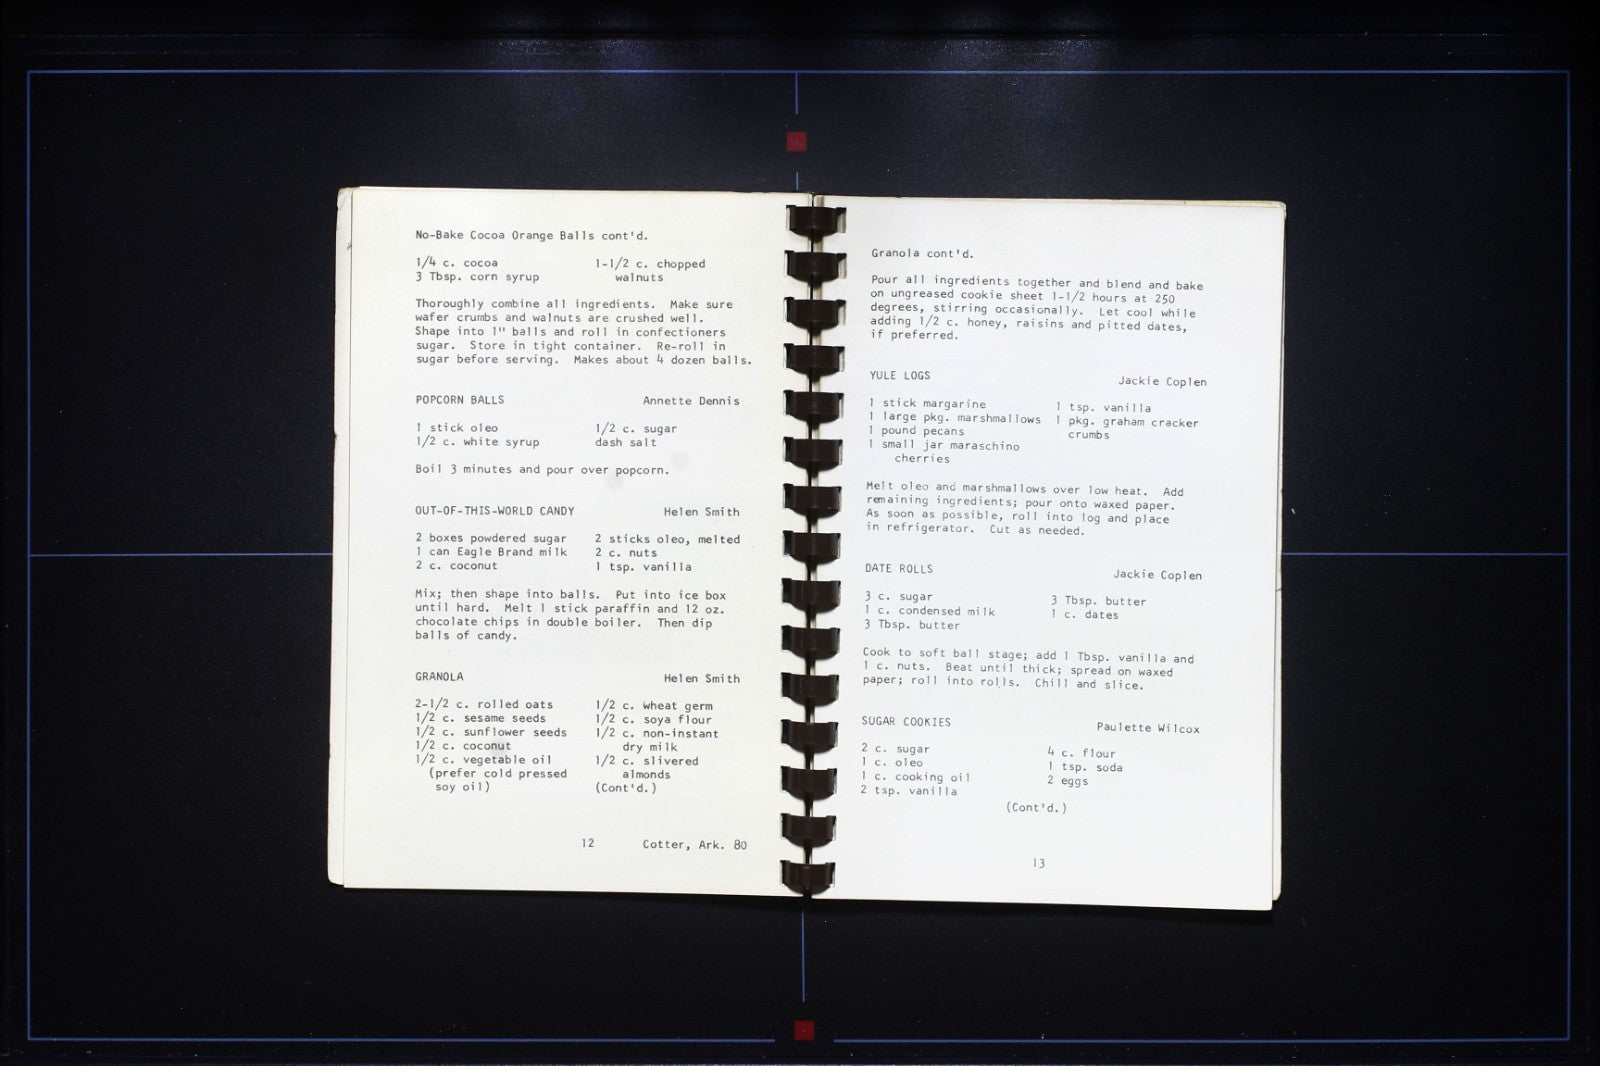 No-Bake Cocoa Orange Balls cont'd.
1/4 c. cocoa 1-1/2 c. chopped
3 Tbsp. corn syrup walnuts
Thoroughly combine all ingredients. Make sure
wafer crumbs and walnuts are crushed well.
Shape into 1" balls and roll in confectioners
sugar. Store in tight container. Re-roll in
sugar before serving. Makes about 4 dozen balls.
POPCORN BALLS Annette Dennis
1 stick oleo 1/2 c. sugar
1/2 c. white syrup dash salt
Boil 3 minutes and pour over popcorn.
OUT-OF-THIS-WORLD CANDY Helen Smith
2 boxes powdered sugar 2 sticks oleo, melted
1 can Eagle Brand milk 2 c. nuts
2 c. coconut 1 tsp. vanilla
Mix; then shape into balls. Put into ice box
until hard. Melt 1 stick paraffin and 12 oz.
chocolate chips in double boiler. Then dip
balls of candy.
GRANOLA Helen Smith
2-1/2 c. rolled oats 1/2 c. wheat germ
1/2 c. sesame seeds 1/2 c. soya flour
1/2 c. sunflower seeds 1/2 c. non-instant
1/2 c. coconut dry milk
1/2 c. vegetable oil 1/2 c. slivered
(prefer cold pressed almonds
soy oil) (Cont'd.)
12 Cotter, Ark. 80
Granola cont'd.
Pour all ingredients together and blend and bake
on ungreased cookie sheet 1-1/2 hours at 250
degrees, stirring occasionally. Let cool while
adding 1/2 c. honey, raisins and pitted dates,
if preferred.
YULE LOGS Jackie Coplen
1 stick margarine 1 tsp. vanilla
1 large pkg. marshmallows 1 pkg. graham cracker
1 pound pecans crumbs
1 small jar maraschino
cherries
Melt oleo and marshmallows over low heat. Add
remaining ingredients; pour onto waxed paper.
As soon as possible, roll into log and place
in refrigerator. Cut as needed.
DATE ROLLS Jackie Coplen
3 c. sugar 3 Tbsp. butter
1 c. condensed milk 1 c. dates
3 Tbsp. butter
Cook to soft ball stage; add 1 Tbsp. vanilla and
1 c. nuts. Beat until thick; spread on waxed
paper; roll into rolls. Chill and slice.
SUGAR COOKIES Paulette Wilcox
2 c. sugar 4 c. flour
1 c. oleo 1 tsp. soda
1 c. cooking oil 2 eggs
2 tsp. vanilla
(Cont'd.)
13